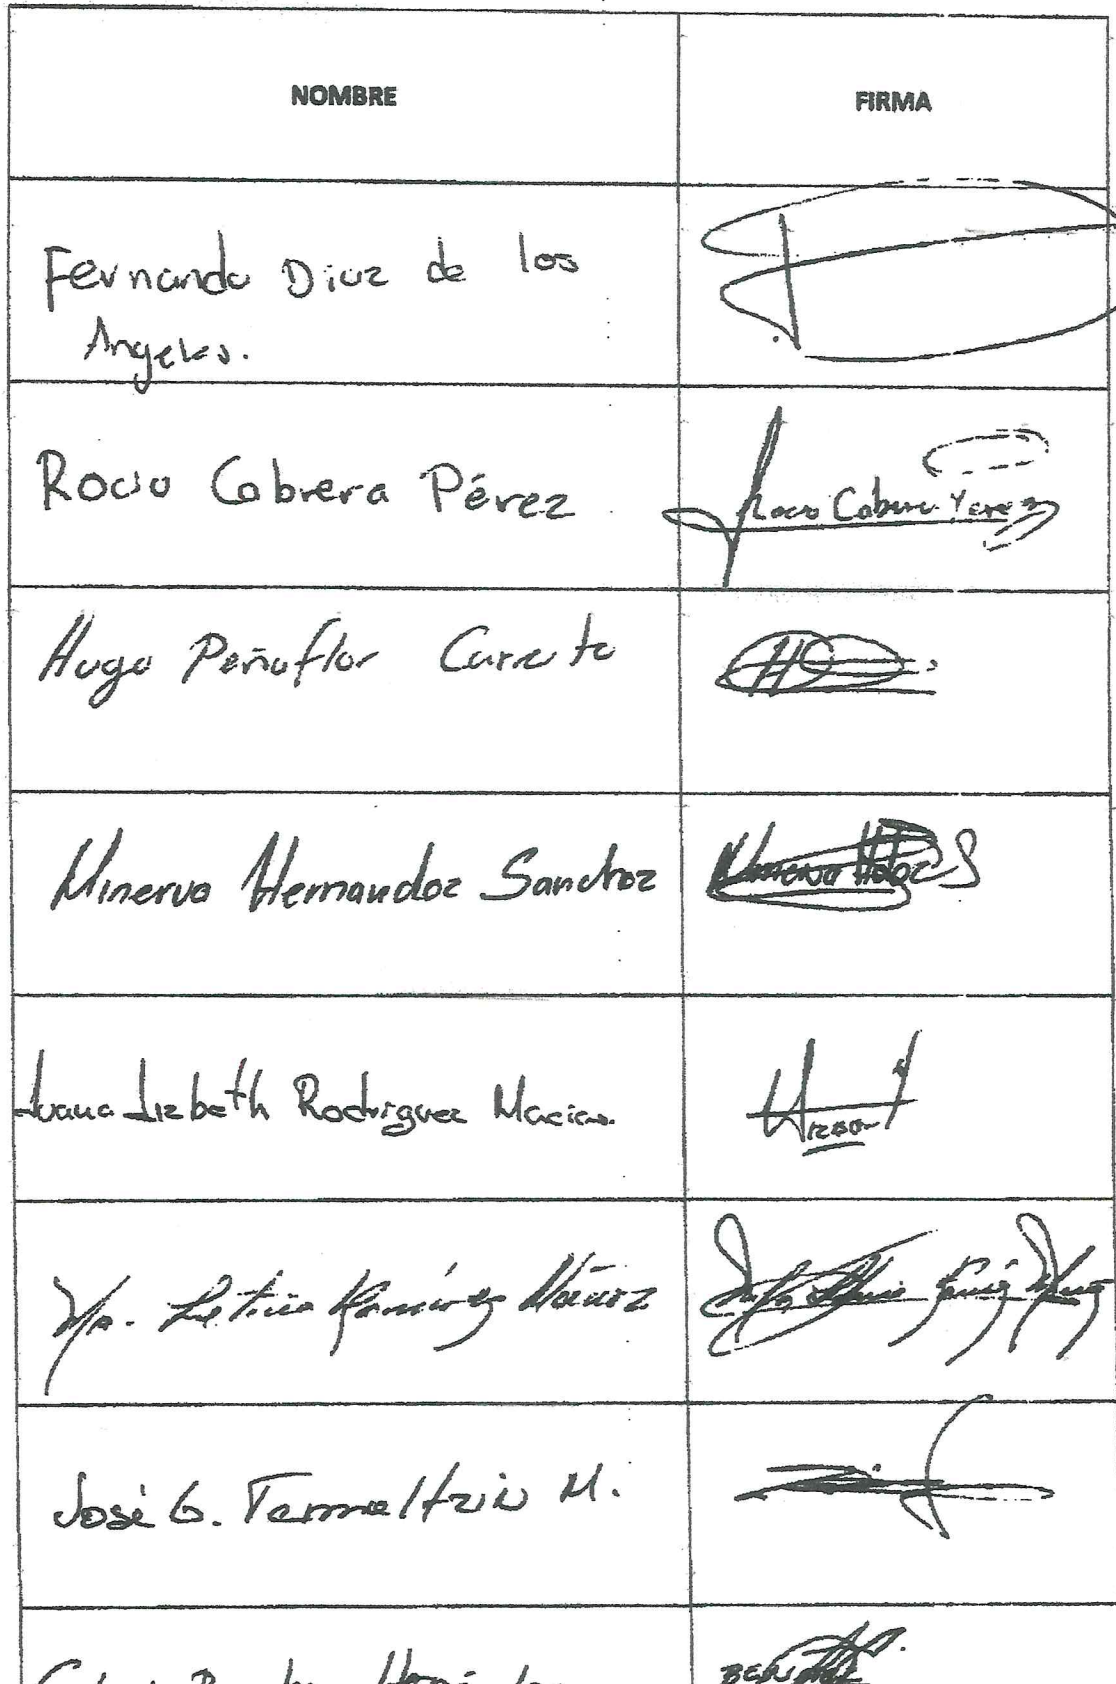 NOMBRE FIRMA
Fernando Diaz de los
Angeles.
Rocio Cabrera Pérez
Rocio Cabrera Perez
Hugo Peñaflor
Minerva Hernandez Sanchez
Minerva Hdez S
Juana Lizbeth Rodriguez Macias
Ma. Leticia Ramírez
José G. Temaltzin M.